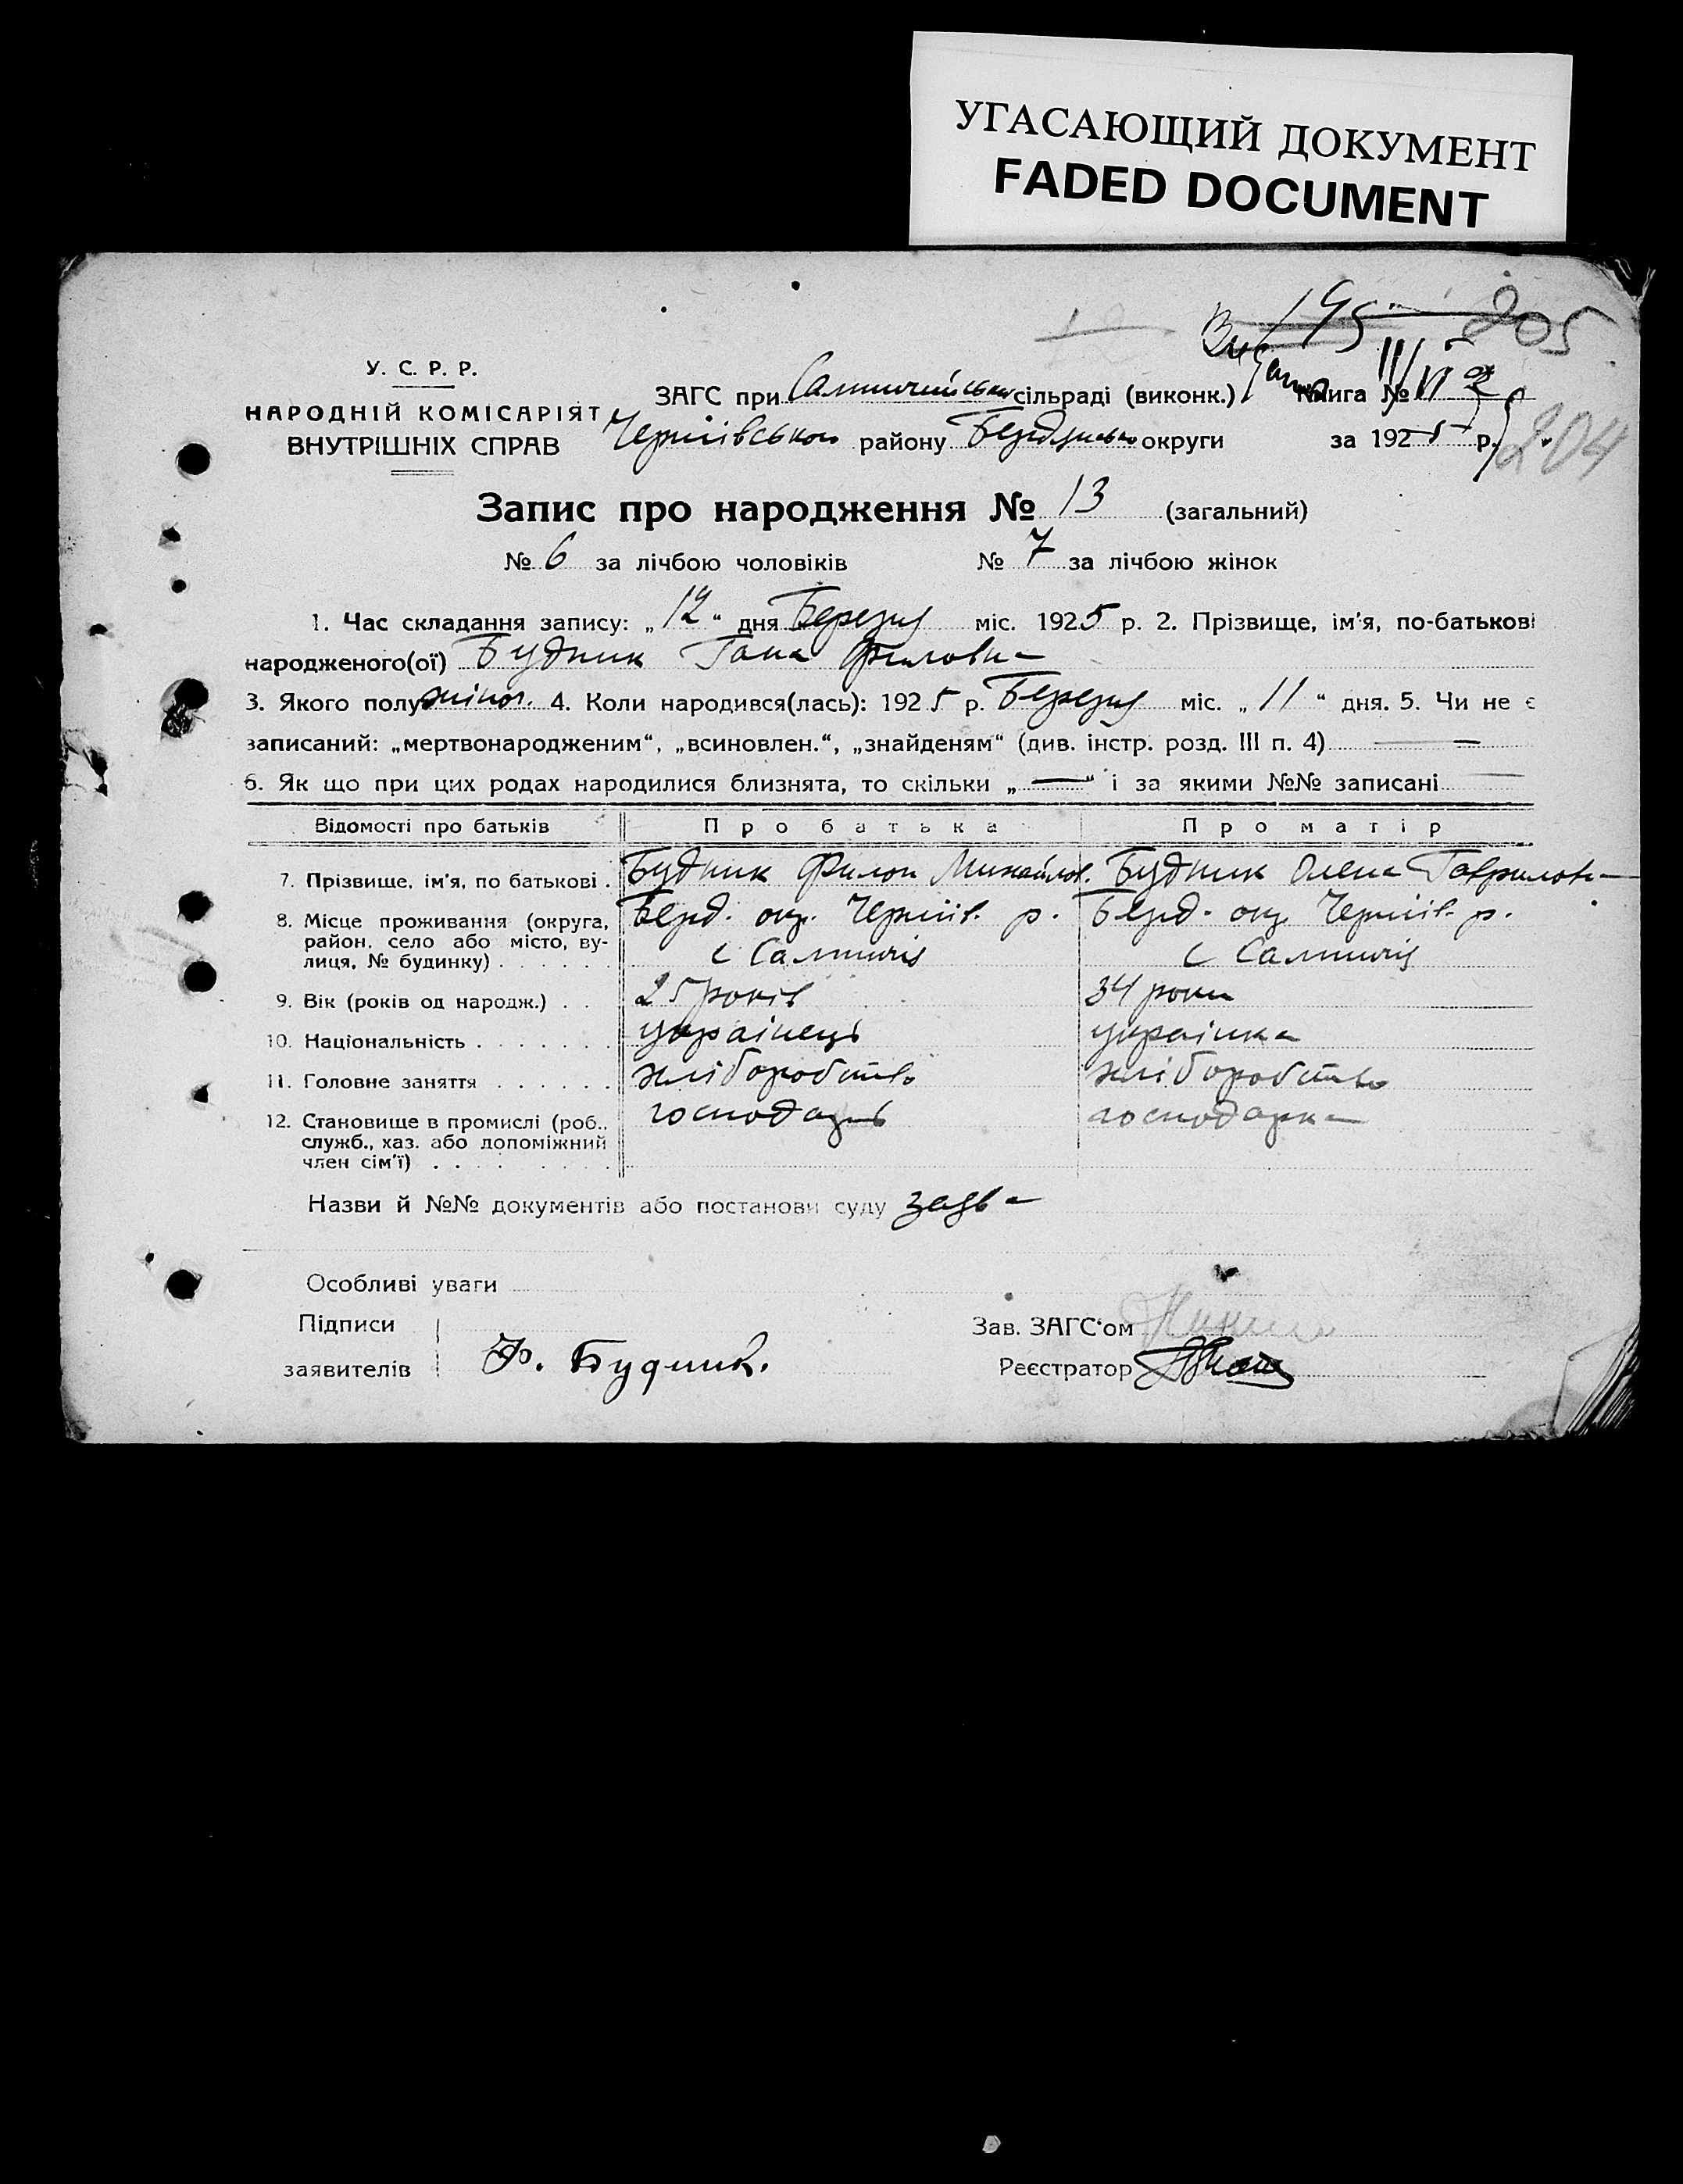 УГАСАЮЩИЙ ДОКУМЕНТ
FADED DOCUMENT
195 205
У. С. Р. Р.
НАРОДНІЙ КОМІСАРІЯТ
ВНУТРІШНІХ СПРАВ
ЗАГС при сільраді (виконк.) Книга №
району округи за 1925 р. 204
Запис про народження № 13 (загальний)
№ 6 за лічбою чоловіків № 7 за лічбою жінок
1. Час складання запису: „12“ дня Березня міс. 1925 р. 2. Прізвище, ім'я, по-батькові
народженого(ої) Будник Гана Филовна
3. Якого полу жіноч. 4. Коли народився(лась): 1925 р. Березня міс. „11“ дня. 5. Чи не є
записаний: „мертвонародженим“, „всиновлен.“, „знайденям“ (див. інстр. розд. III п. 4) —
6. Як що при цих родах народилися близнята, то скільки „—“ і за якими №№ записані —
Відомості про батьків Про батька Про матір
7. Прізвище, ім'я, по батькові . Будник Филон Михайлов. Будник Олена Гаврилов
8. Місце проживання (округа, район, село або місто, вулиця, № будинку) . . . . . . Берд. окр. р. Берд. окр р.
с Салтичія с Салтичія
9. Вік (років од народж.) . . 25 років 34 роки
10. Національність . . . . . . . українець українка
11. Головне заняття . . . . . . хліборобство хліборобство
12. Становище в промислі (роб., служб., хаз. або допоміжний член сім'ї) . . . . . . . . господарь господарка
Назви й №№ документів або постанови суду заява
Особливі уваги
Підписи
заявителів Ф. Будник.
Зав. ЗАГС'ом
Реєстратор